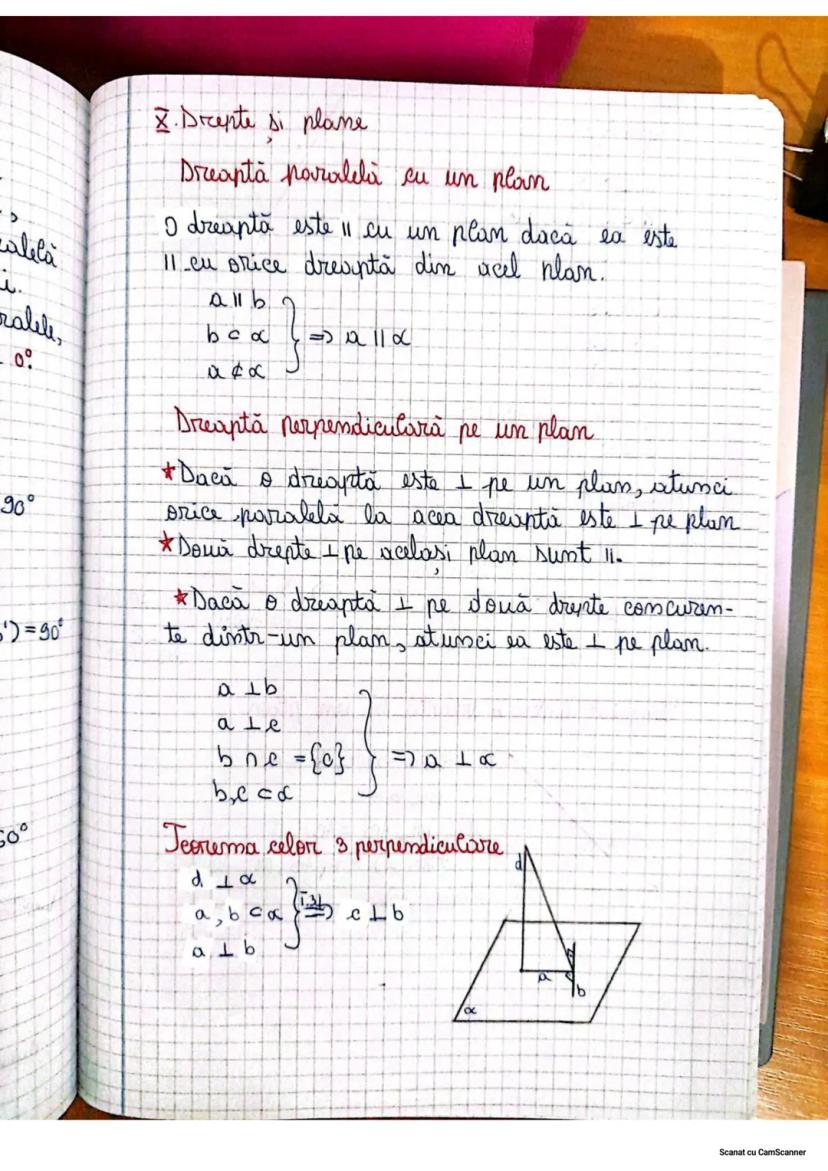 X. Drepte și plane
Dreaptă paralelă cu un plan
O dreaptă este || cu un plan dacă ea este
|| cu orice dreaptă din acel plan.
a || b
b ⊂ α } => a || α
a ⊄ α
Dreaptă perpendiculară pe un plan
★Dacă o dreaptă este ⊥ pe un plan, atunci
orice paralelă la acea dreaptă este ⊥ pe plan
★Două drepte ⊥ pe același plan sunt ||.
★Dacă o dreaptă ⊥ pe două drepte concuren-
te dintr-un plan, atunci ea este ⊥ pe plan.
a ⊥ b
a ⊥ c
b ∩ c = {o} } => a ⊥ α
b,c ⊂ α
Teorema celor 3 perpendiculare
d ⊥ α
a, b ⊂ α } T.3⊥ => c ⊥ b
a ⊥ b
d
a
b
α
alelă
i.
ralele,
0°
90°
')=90°
60°
Scanat cu CamScanner